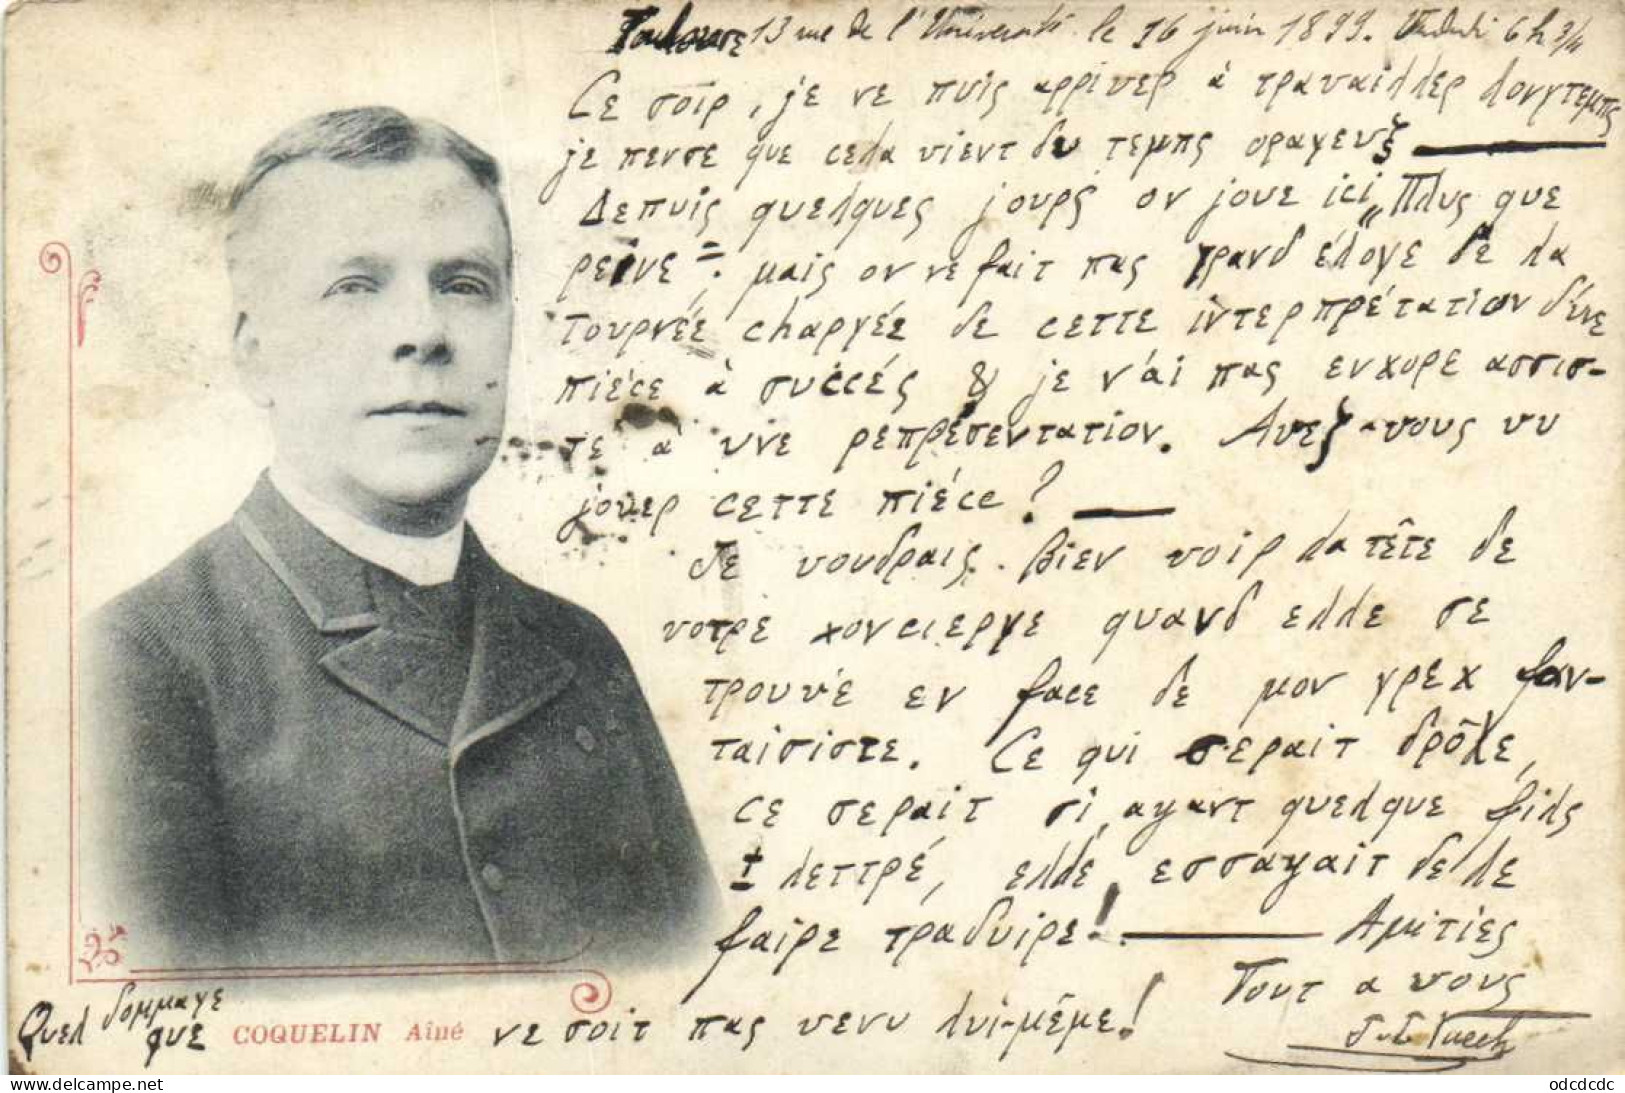 Toulouse 13 rue de l'Université le 16 juin 1899. Vendredi 6 h 3/4
Ce σoip, j'ε νε πυis αρρivερ à τραvαiλλερ λονγτεμπς
jε πενσε que cελα vιεντ δυ τεμπς οραγευξ —
Δεπυiς quελques jουρς ον jουε ici „Πλυς que
ρεiνε"; μαiς ον νε fαiτ πας γρανδ έλογε δε λα
τουρνέε chαργέε δε cεττε iντερπρέτατiον δ'υνε
πièce à συccéς & jε ν'αi πας ενχορε ασσισ-
τε à υνε ρεπρέσεντατiον. Avεξ-vους vυ
jουερ cεττε πièce? —
Jε vουδραiς βiεν vοiρ λα τêτε δε
vοτρε χονciεργε quανδ ελλε σε
τρουvε εν fαcε δε μον γρεχ fαν-
ταiσiστε. Cε qui σεραiτ δρôλε,
cε σεραiτ σi, αyαντ quελque fiλς
± λεττρέ, ελλε εσσαyαiτ δε λε
fαiρε τραδυiρε! — Αμiτiéς
Τουτ à vους
Quελ δομμαγε
que COQUELIN Aîné νε σοiτ πας vενυ λυi-μêμε!
odcdcdc